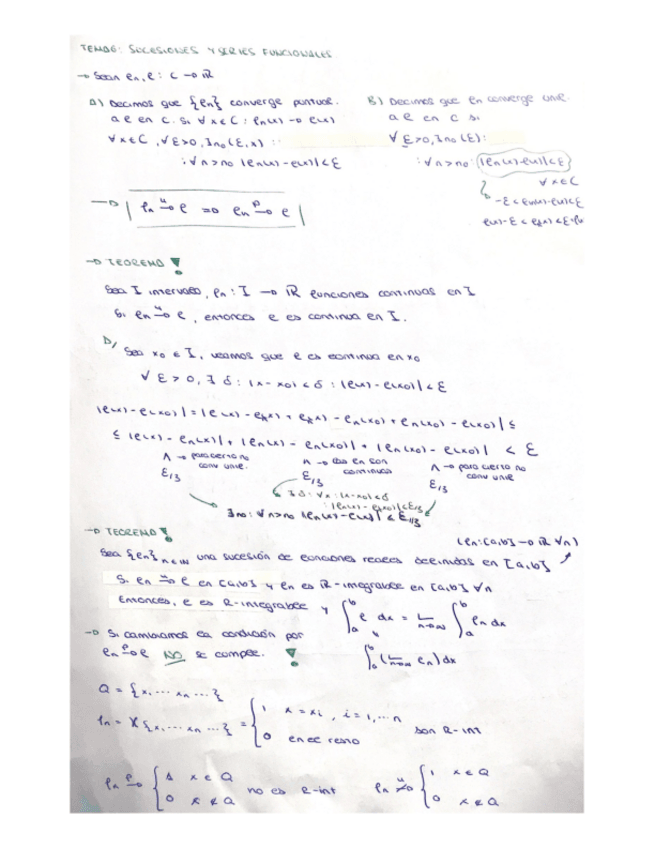 TEMA 6: SUCESIONES Y SERIES FUNCIONALES
→ Sean fn, f : C → ℝ
A) Decimos que {fn} converge puntual.
a f en C si ∀x∈C : fn(x) → f(x)
∀x∈C, ∀ε>0, ∃n₀(ε,x) :
: ∀n>n₀ |fn(x)-f(x)|<ε
B) Decimos que fn converge unif.
a f en C si
∀ε>0, ∃n₀(ε):
: ∀n>n₀ |fn(x)-f(x)|<ε
∀x∈C
-ε<fn(x)-f(x)<ε
→ | fn →ᵘ f ⇒ fn →ᵖ f |
→ TEOREMA !
Sea I intervalo, fn : I → ℝ funciones continuas en I
Si fn →ᵘ f, entonces f es continua en I.
D/
Sea x₀ ∈ I, veamos que f es continua en x₀
∀ε>0, ∃δ : |x-x₀|<δ : |f(x)-f(x₀)|<ε
|f(x)-f(x₀)| = |f(x)-fn(x)+fn(x)-fn(x₀)+fn(x₀)-f(x₀)| ≤
≤ |f(x)-fn(x)| + |fn(x)-fn(x₀)| + |fn(x₀)-f(x₀)| < ε
∧ → para cierto n₀ conv unif.
ε/3
∧ → las fn son continuas
ε/3
∧ → para cierto n₀ conv unif
ε/3
∃δ : ∀x : |x-x₀|<δ
: |fn(x)-fn(x₀)|<ε/3
∃n₀ : ∀n>n₀ |fn(x)-f(x)|<ε/3
→ TEOREMA !
(fn:[a,b] → ℝ ∀n)
Sea {fn}n∈ℕ una sucesión de funciones reales definidas en [a,b]
Si fn →ᵘ f en [a,b] y fn es R-integrable en [a,b] ∀n
Entonces, f es R-integrable y ∫ₐᵇ f dx = L n→∞ ∫ₐᵇ fn dx
∫ₐᵇ (L n→∞ fn) dx
→ Si cambiamos la condición por
fn →ᵖ f NO se cumple. !
Q = {x₁ ... xn ...}
fn = X{x₁, ... xn ...} = { 1 x = xi, i = 1, ... n
0 en el resto
son R-int
fn →ᵖ { 1 x ∈ Q
0 x ∉ Q
no es R-int
fn ↛ᵘ { 1 x ∈ Q
0 x ∉ Q